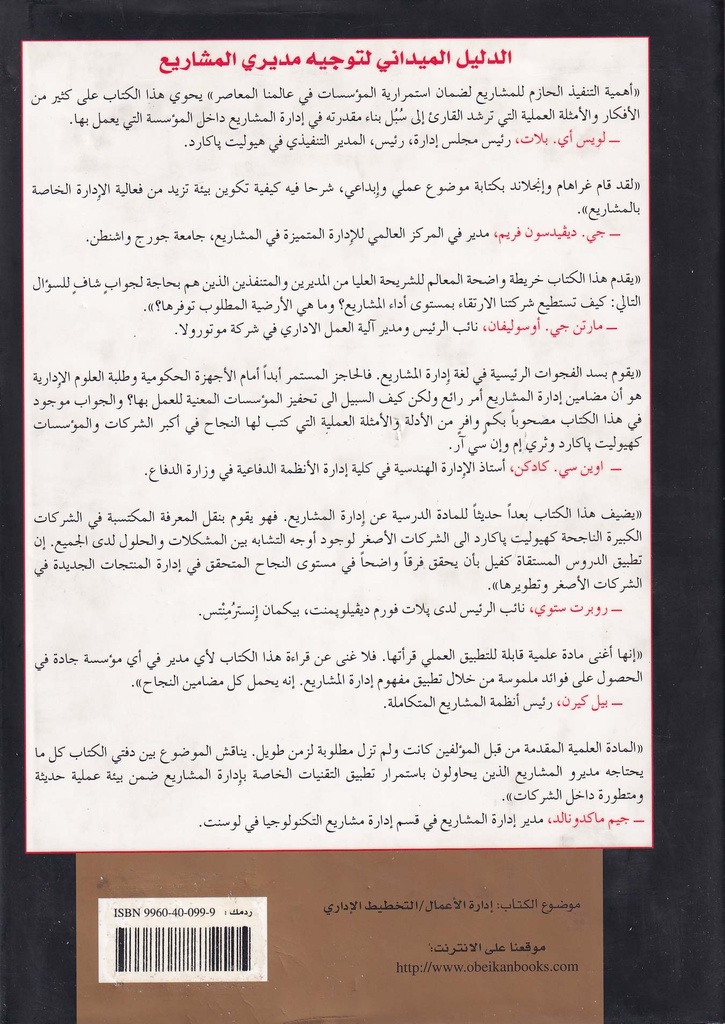 الدليل الميداني لتوجيه مديري المشاريع
«أهمية التنفيذ الحازم للمشاريع لضمان استمرارية المؤسسات في عالمنا المعاصر» يحوي هذا الكتاب على كثير من
الأفكار والأمثلة العملية التي ترشد القارئ إلى سُبُل بناء مقدرته في إدارة المشاريع داخل المؤسسة التي يعمل بها.
ــ لويس أي. بلات، رئيس مجلس إدارة، رئيس، المدير التنفيذي في هيوليت پاكارد.
«لقد قام غراهام وإنجلاند بكتابة موضوع عملي وإبداعي، شرحا فيه كيفية تكوين بيئة تزيد من فعالية الإدارة الخاصة
بالمشاريع».
ــ جي. ديڤيدسون فريم، مدير في المركز العالمي للإدارة المتميزة في المشاريع، جامعة جورج واشنطن.
«يقدم هذا الكتاب خريطة واضحة المعالم للشريحة العليا من المديرين والمتنفذين الذين هم بحاجة لجوابٍ شافٍ للسؤال
التالي: كيف تستطيع شركتنا الارتقاء بمستوى أداء المشاريع؟ وما هي الأرضية المطلوب توفرها؟».
ــ مارتن جي. أوسوليفان، نائب الرئيس ومدير آلية العمل الاداري في شركة موتورولا.
«يقوم بسد الفجوات الرئيسية في لغة إدارة المشاريع. فالحاجز المستمر أبداً أمام الأجهزة الحكومية وطلبة العلوم الإدارية
هو أن مضامين إدارة المشاريع أمر رائع ولكن كيف السبيل الى تحفيز المؤسسات المعنية للعمل بها؟ والجواب موجود
في هذا الكتاب مصحوباً بكم وافرٍ من الأدلة والأمثلة العملية التي كتب لها النجاح في أكبر الشركات والمؤسسات
كهيوليت پاكارد وثري إم وإن سي آر.
ــ اوين سي. كادكن، أستاذ الإدارة الهندسية في كلية إدارة الأنظمة الدفاعية في وزارة الدفاع.
«يضيف هذا الكتاب بعداً حديثاً للمادة الدرسية عن إدارة المشاريع. فهو يقوم بنقل المعرفة المكتسبة في الشركات
الكبيرة الناجحة كهيوليت پاكارد الى الشركات الأصغر لوجود أوجه التشابه بين المشكلات والحلول لدى الجميع. إن
تطبيق الدروس المستقاة كفيل بأن يحقق فرقاً واضحاً في مستوى النجاح المتحقق في إدارة المنتجات الجديدة في
الشركات الأصغر وتطويرها».
ــ روبرت ستوي، نائب الرئيس لدى پلات فورم ديڤيلوپمنت، بيكمان إنسترُمِنْتس.
«إنها أغنى مادة علمية قابلة للتطبيق العملي قرأتها. فلا غنى عن قراءة هذا الكتاب لأي مدير في أي مؤسسة جادة في
الحصول على فوائد ملموسة من خلال تطبيق مفهوم إدارة المشاريع. إنه يحمل كل مضامين النجاح».
ــ بيل كيرن، رئيس أنظمة المشاريع المتكاملة.
«المادة العلمية المقدمة من قبل المؤلفين كانت ولم تزل مطلوبة لزمن طويل. يناقش الموضوع بين دفتي الكتاب كل ما
يحتاجه مديرو المشاريع الذين يحاولون باستمرار تطبيق التقنيات الخاصة بإدارة المشاريع ضمن بيئة عملية حديثة
ومتطورة داخل الشركات».
ــ جيم ماكدونالد، مدير إدارة المشاريع في قسم إدارة مشاريع التكنولوجيا في لوسنت.
موضوع الكتاب: إدارة الأعمال/التخطيط الإداري
موقعنا على الانترنت:
http://www.obeikanbooks.com
ردمك : ISBN 9960-40-099-9